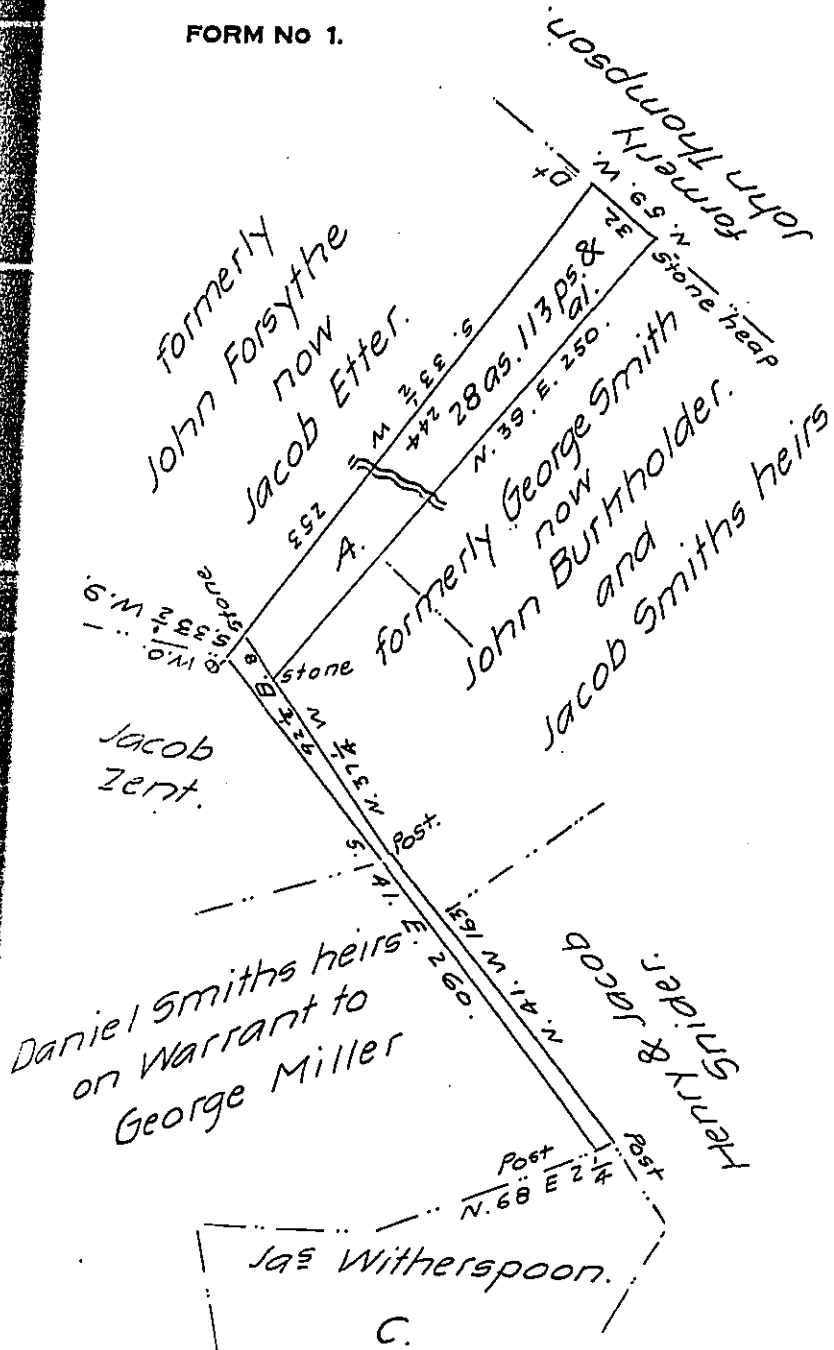 FORM No 1.
formerly
John Thompson.
N. 59. W.
32
stone heap
formerly
John Forsythe
now
Jacob Etter.
S. 33 1/2 W
244
253
28 as. 113 ps. &
al.
N. 39. E. 250.
A.
formerly George Smith
now
John Burkholder.
and
Jacob Smiths heirs
stone
S. 33 1/2 W. 9.
W.O.
8
B.
stone
92 1/2
N. 37 1/4 W
Jacob
Zent.
Post.
S. 41. E 260.
N. 41. W 163
Daniel Smiths heirs
on Warrant to
George Miller
Henry & Jacob
Snider.
Post
Post
N. 68 E 2 1/4
Jas Witherspoon.
C.